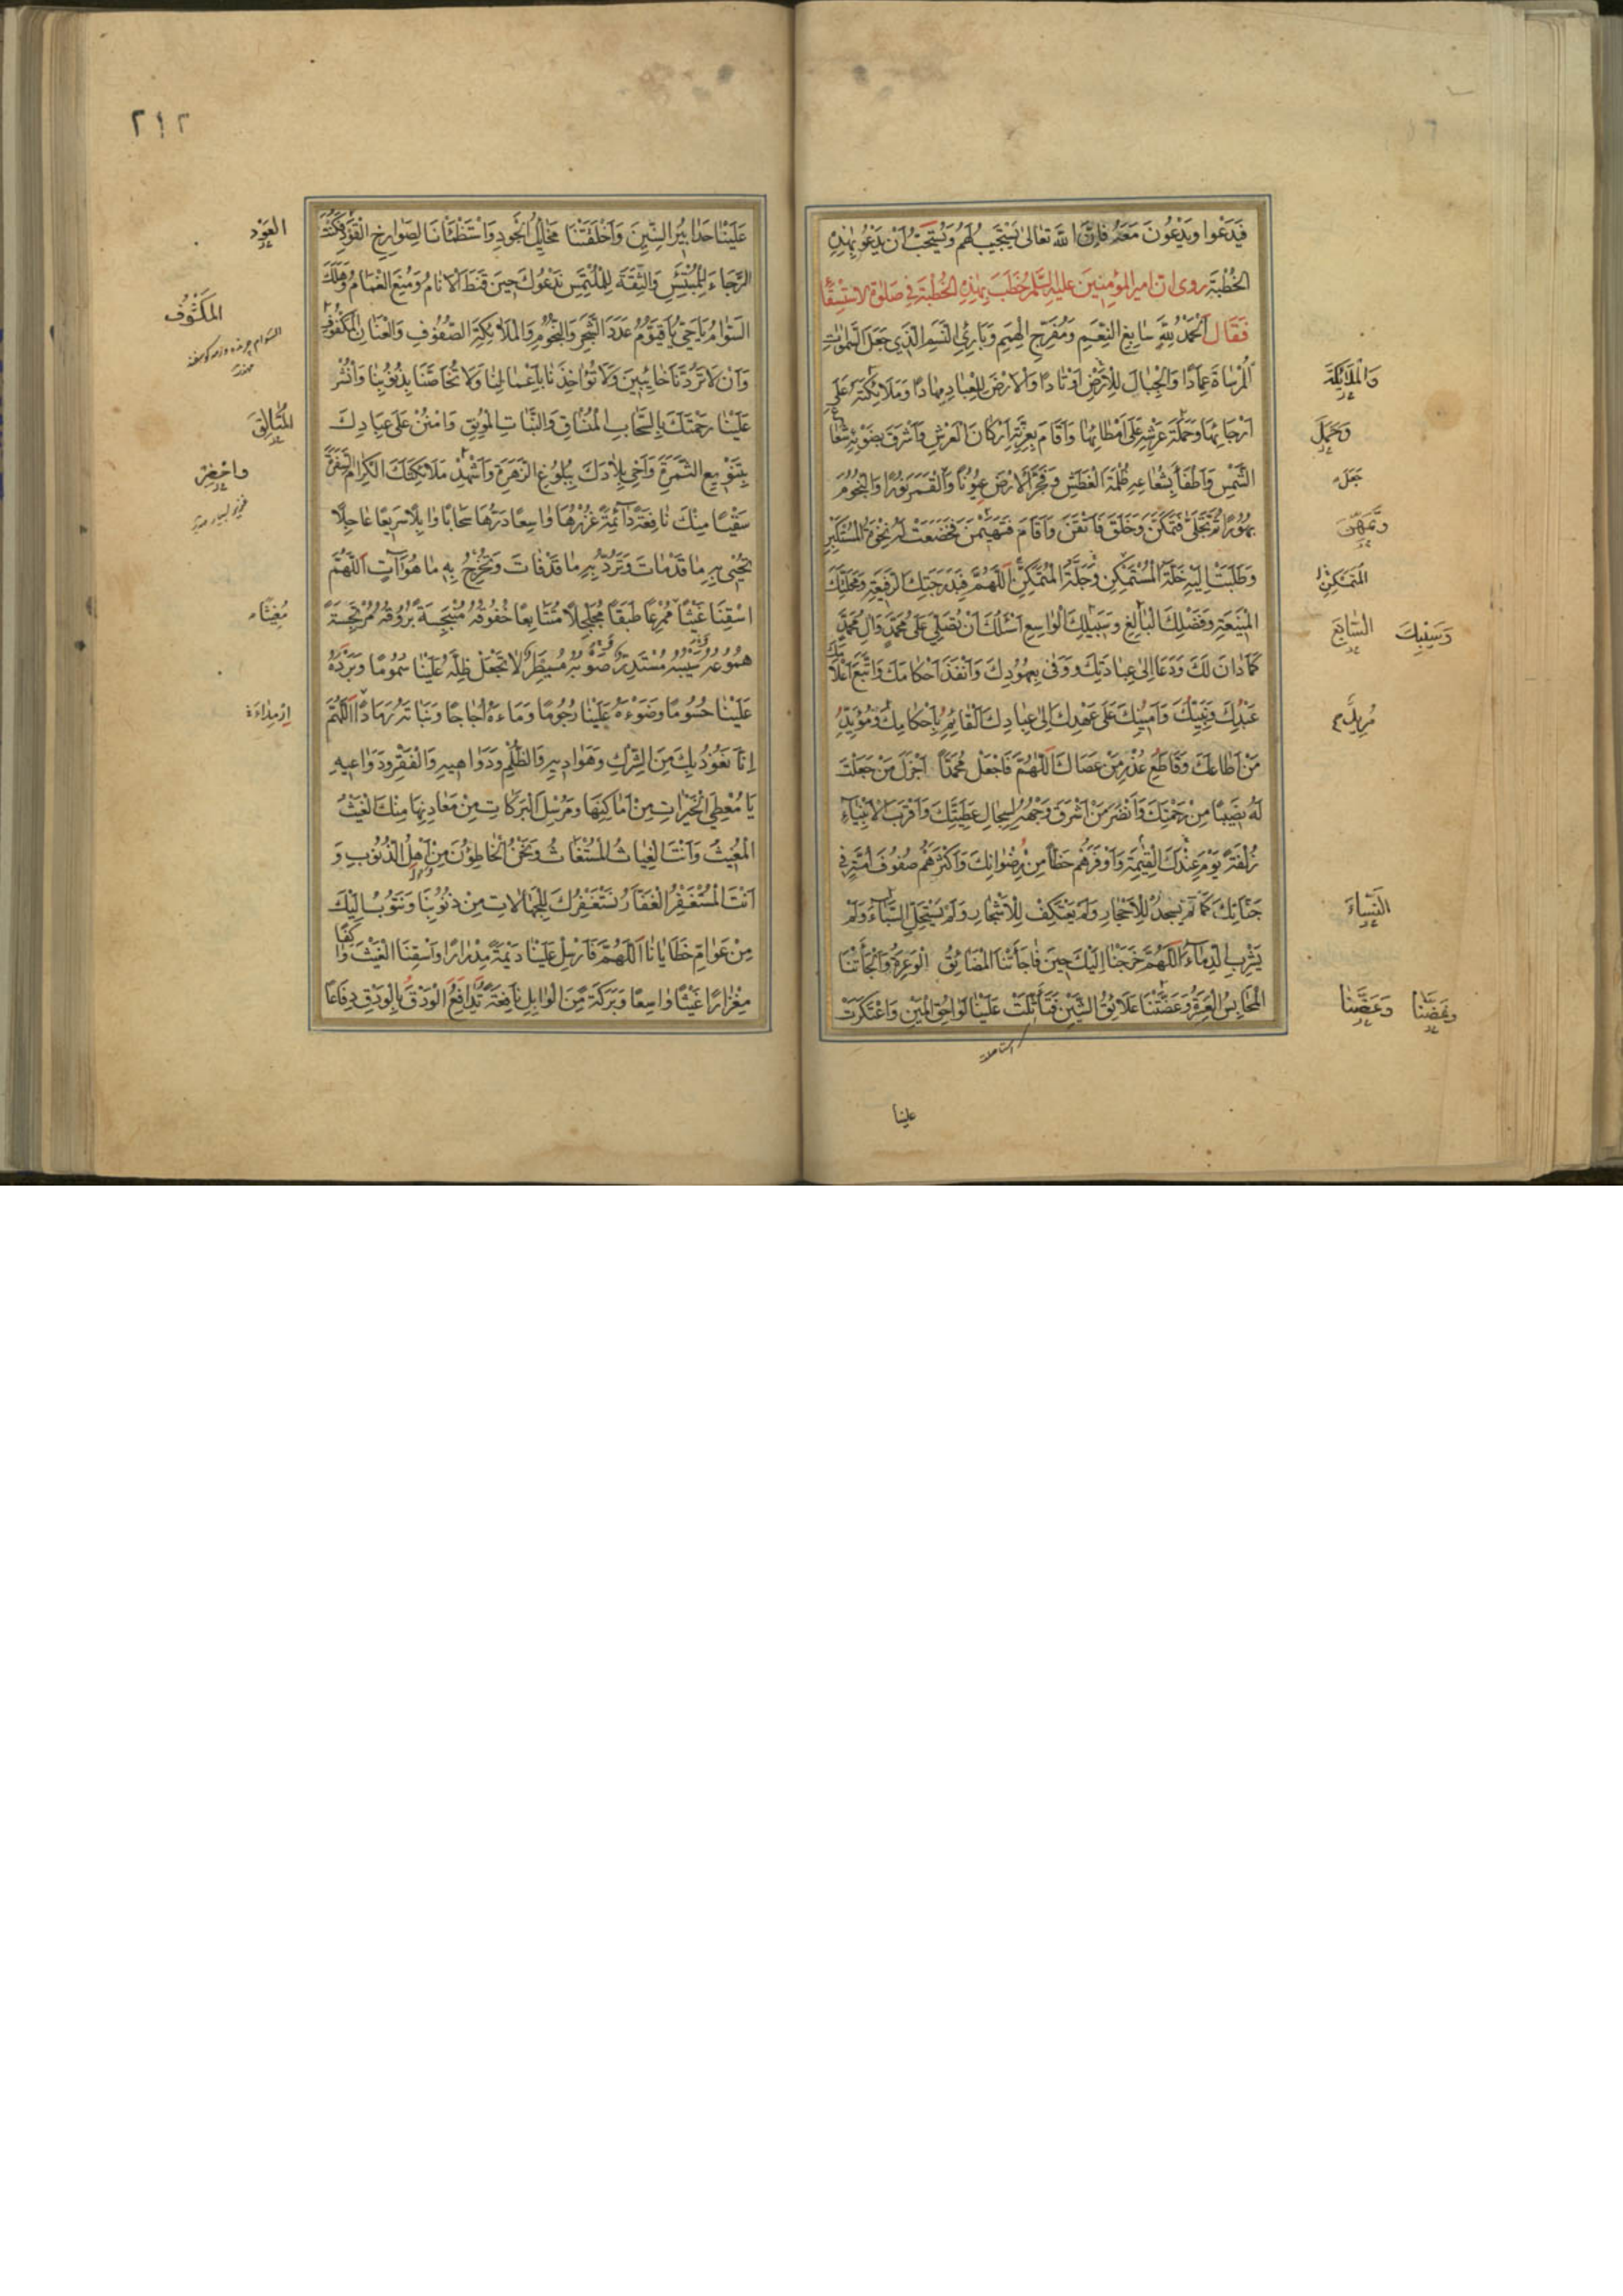 فَيَدْعُوا وَيَدْعُونَ مَعَهُ فَاِنَّ اللهَ تَعَالىٰ يَسْتَجِيبُ لَهُمْ وَيُسْتَحَبُّ اَنْ يَدْعُوَ بِهٰذِهِ
الخُطْبَةِ روى ان امير المؤمنين عليه السّلم خَطَبَ بِهٰذِهِ الخُطْبَةِ فِي صَلٰوةِ الاستِسْقَاءِ
فَقَالَ اَلْحَمْدُ لِلّٰهِ سَابِغِ النِّعَمِ وَمُفَرِّجِ الْهِمَمِ وَبَارِئِ النَّسَمِ الَّذِي جَعَلَ السَّمٰوٰتِ
الْمُرْسَاةَ عِمَادًا وَالْجِبَالَ لِلْاَرْضِ اَوْتَادًا وَالْاَرْضَ لِلْعِبَادِ مِهَادًا وَمَلَائِكَتَهُ عَلىٰ
اَرْجَائِهَا وَحَمَلَةَ عَرْشِهِ عَلىٰ اَمْطَائِهَا وَاَقَامَ بِعِزَّتِهِ اَرْكَانَ الْعَرْشِ وَاَشْرَقَ بِضَوْئِهِ شُعَاعَ
الشَّمْسِ وَاَطْفَأَ بِشُعَاعِهِ ظُلْمَةَ الْغَطَشِ وَفَجَّرَ الْاَرْضَ عُيُونًا وَالْقَمَرَ نُورًا وَالنُّجُومَ
بُهُورًا ثُمَّ تَجَلّىٰ فَتَمَكَّنَ وَخَلَقَ فَاَتْقَنَ وَاَقَامَ فَتَهَيْمَنَ فَخَضَعَتْ لَهُ نَخْوَةُ الْمُسْتَكْبِرِ
وَطُلِبَتْ اِلَيْهِ خَلَّةُ الْمُتَمَسْكِنِ اَللّٰهُمَّ فَبِدَرَجَتِكَ الرَّفِيعَةِ وَمَحَلَّتِكَ
الْمَنِيعَةِ وَفَضْلِكَ الْبَالِغِ وَسَبِيلِكَ الْوَاسِعِ اَسْئَلُكَ اَنْ تُصَلِّيَ عَلىٰ مُحَمَّدٍ وَآلِ مُحَمَّدٍ
كَمَا دَانَ لَكَ وَدَعَا اِلىٰ عِبَادَتِكَ وَوَفىٰ بِعُهُودِكَ وَاَنْفَذَ اَحْكَامَكَ وَاتَّبَعَ اَعْلَامَكَ
عَبْدِكَ وَنَبِيِّكَ وَاَمِينِكَ عَلىٰ عَهْدِكَ اِلىٰ عِبَادِكَ الْقَائِمِ بِاَحْكَامِكَ وَمُؤَيِّدِ
مَنْ اَطَاعَكَ وَقَاطِعِ عُذْرِ مَنْ عَصَاكَ اَللّٰهُمَّ فَاجْعَلْ مُحَمَّدًا اَجْزَلَ مَنْ جَعَلْتَ
لَهُ نَصِيبًا مِنْ رَحْمَتِكَ وَاَنْضَرَ مَنْ اَشْرَقَ وَجْهُهُ لِسِجَالِ عَطِيَّتِكَ وَاَقْرَبَ الْاَنْبِيَاءِ
زُلْفَةً يَوْمَ الْقِيٰمَةِ عِنْدَكَ وَاَوْفَرَهُمْ حَظًّا مِنْ رِضْوَانِكَ وَاَكْثَرَهُمْ صُفُوفَ اُمَّةٍ فِي
جَنَانِكَ كَمَا لَمْ يَسْجُدْ لِلْاَحْجَارِ وَلَمْ يَعْتَكِفْ لِلْاَشْجَارِ وَلَمْ يَسْتَحِلَّ السِّبَاءَ وَلَمْ
يَشْرَبِ الدِّمَاءَ اَللّٰهُمَّ خَرَجْنَا اِلَيْكَ حِينَ فَاجَأَتْنَا الْمَضَائِقُ الْوَعِرَةُ وَاَلْجَأَتْنَا
الْمَحَابِسُ الْعَسِرَةُ وَعَضَّتْنَا عَلَائِقُ الشَّيْنِ فَتَأَثَّلَتْ عَلَيْنَا لَوَاحِقُ الْمَيْنِ وَاعْتَكَرَتْ
علينا
وَالْمَلَائِكَةَ
وَحَمَلَ
جَعَلَ
الْمُتَمَكِّنِ
وَسَيْبِكَ السَّابِغِ
النِّسَاءَ
٢١٢
عَلَيْنَا حَدَابِيرُ السِّنِينَ وَاَخْلَفَتْنَا مَخَايِلُ الْجُودِ وَاسْتَظْمَأْنَا لِصَوَارِخِ الْقَوْدِ فَكُنْتَ
الرَّجَاءَ لِلْمُبْتَئِسِ وَالثِّقَةَ لِلْمُلْتَمِسِ نَدْعُوكَ حِينَ قَنَطَ الْاَنَامُ وَمُنِعَ الْغَمَامُ وَهَلَكَ
السَّوَامُ يَا حَيُّ يَا قَيُّومُ عَدَدَ الشَّجَرِ وَالنُّجُومِ وَالْمَلَائِكَةِ الصُّفُوفِ وَالْعَنَانِ الْمَكْفُوفِ
وَاَنْ لَا تَرُدَّنَا خَائِبِينَ وَلَا تُؤَاخِذَنَا بِاَعْمَالِنَا وَلَا تُحَاصَّنَا بِذُنُوبِنَا وَانْشُرْ
عَلَيْنَا رَحْمَتَكَ بِالسَّحَابِ الْمُنْسَاقِ وَالنَّبَاتِ الْمُونِقِ وَامْنُنْ عَلىٰ عِبَادِكَ
بِتَنْوِيعِ الثَّمَرَةِ وَاَحْيِ بِلَادَكَ بِبُلُوغِ الزَّهَرَةِ وَاَشْهِدْ مَلَائِكَتَكَ الْكِرَامَ السَّفَرَةَ
سَقْيًا مِنْكَ نَافِعَةً دَائِمَةً غُزْرُهَا وَاسِعًا دَرُّهَا سَحَابًا وَابِلًا سَرِيعًا عَاجِلًا
تُحْيِي بِهِ مَا قَدْ مَاتَ وَتَرُدُّ بِهِ مَا قَدْ فَاتَ وَتُخْرِجُ بِهِ مَا هُوَ آتٍ اَللّٰهُمَّ
اسْقِنَا غَيْثًا مُمْرِعًا طَبَقًا مُجَلْجِلًا مُتَتَابِعًا خُفُوقُهُ مُنْبَجِسَةً بُرُوقُهُ مُرْتَجِسَةً
هُمُوعُهُ سَيْبُهُ مُسْتَدِرٌّ صَوْبُهُ مُسْبَطِرٌّ لَا تَجْعَلْ ظِلَّهُ عَلَيْنَا سَمُومًا وَبَرْدَهُ
عَلَيْنَا حُسُومًا وَضَوْءَهُ عَلَيْنَا رُجُومًا وَمَاءَهُ اُجَاجًا وَنَبَاتَهُ رَمَادًا اَللّٰهُمَّ
اِنَّا نَعُوذُ بِكَ مِنَ الشِّرْكِ وَهَوَادِيهِ وَالظُّلْمِ وَدَوَاهِيهِ وَالْفَقْرِ وَدَوَاعِيهِ
يَا مُعْطِيَ الْخَيْرَاتِ مِنْ اَمَاكِنِهَا وَمُرْسِلَ الْبَرَكَاتِ مِنْ مَعَادِنِهَا مِنْكَ الْغَيْثُ
الْمُغِيثُ وَاَنْتَ الْغِيَاثُ الْمُسْتَغَاثُ وَنَحْنُ الْخَاطِؤُنَ مِنْ اَهْلِ الذُّنُوبِ وَ
اَنْتَ الْمُسْتَغْفَرُ الْغَفَّارُ نَسْتَغْفِرُكَ لِلْجَهَالَاتِ مِنْ ذُنُوبِنَا وَنَتُوبُ اِلَيْكَ
مِنْ عَوَامِّ خَطَايَانَا اَللّٰهُمَّ فَاَرْسِلْ عَلَيْنَا دِيمَةً مِدْرَارًا وَاسْقِنَا الْغَيْثَ وَاكِفًا
مِغْزَارًا غَيْثًا وَاسِعًا وَبَرَكَةً مِنَ الْوَابِلِ نَافِعَةً تُدَافِعُ الْوَدْقَ بِالْوَدْقِ دِفَاعًا
الْعَوْدِ
وَاخْضِرْ
مُغِيثًا